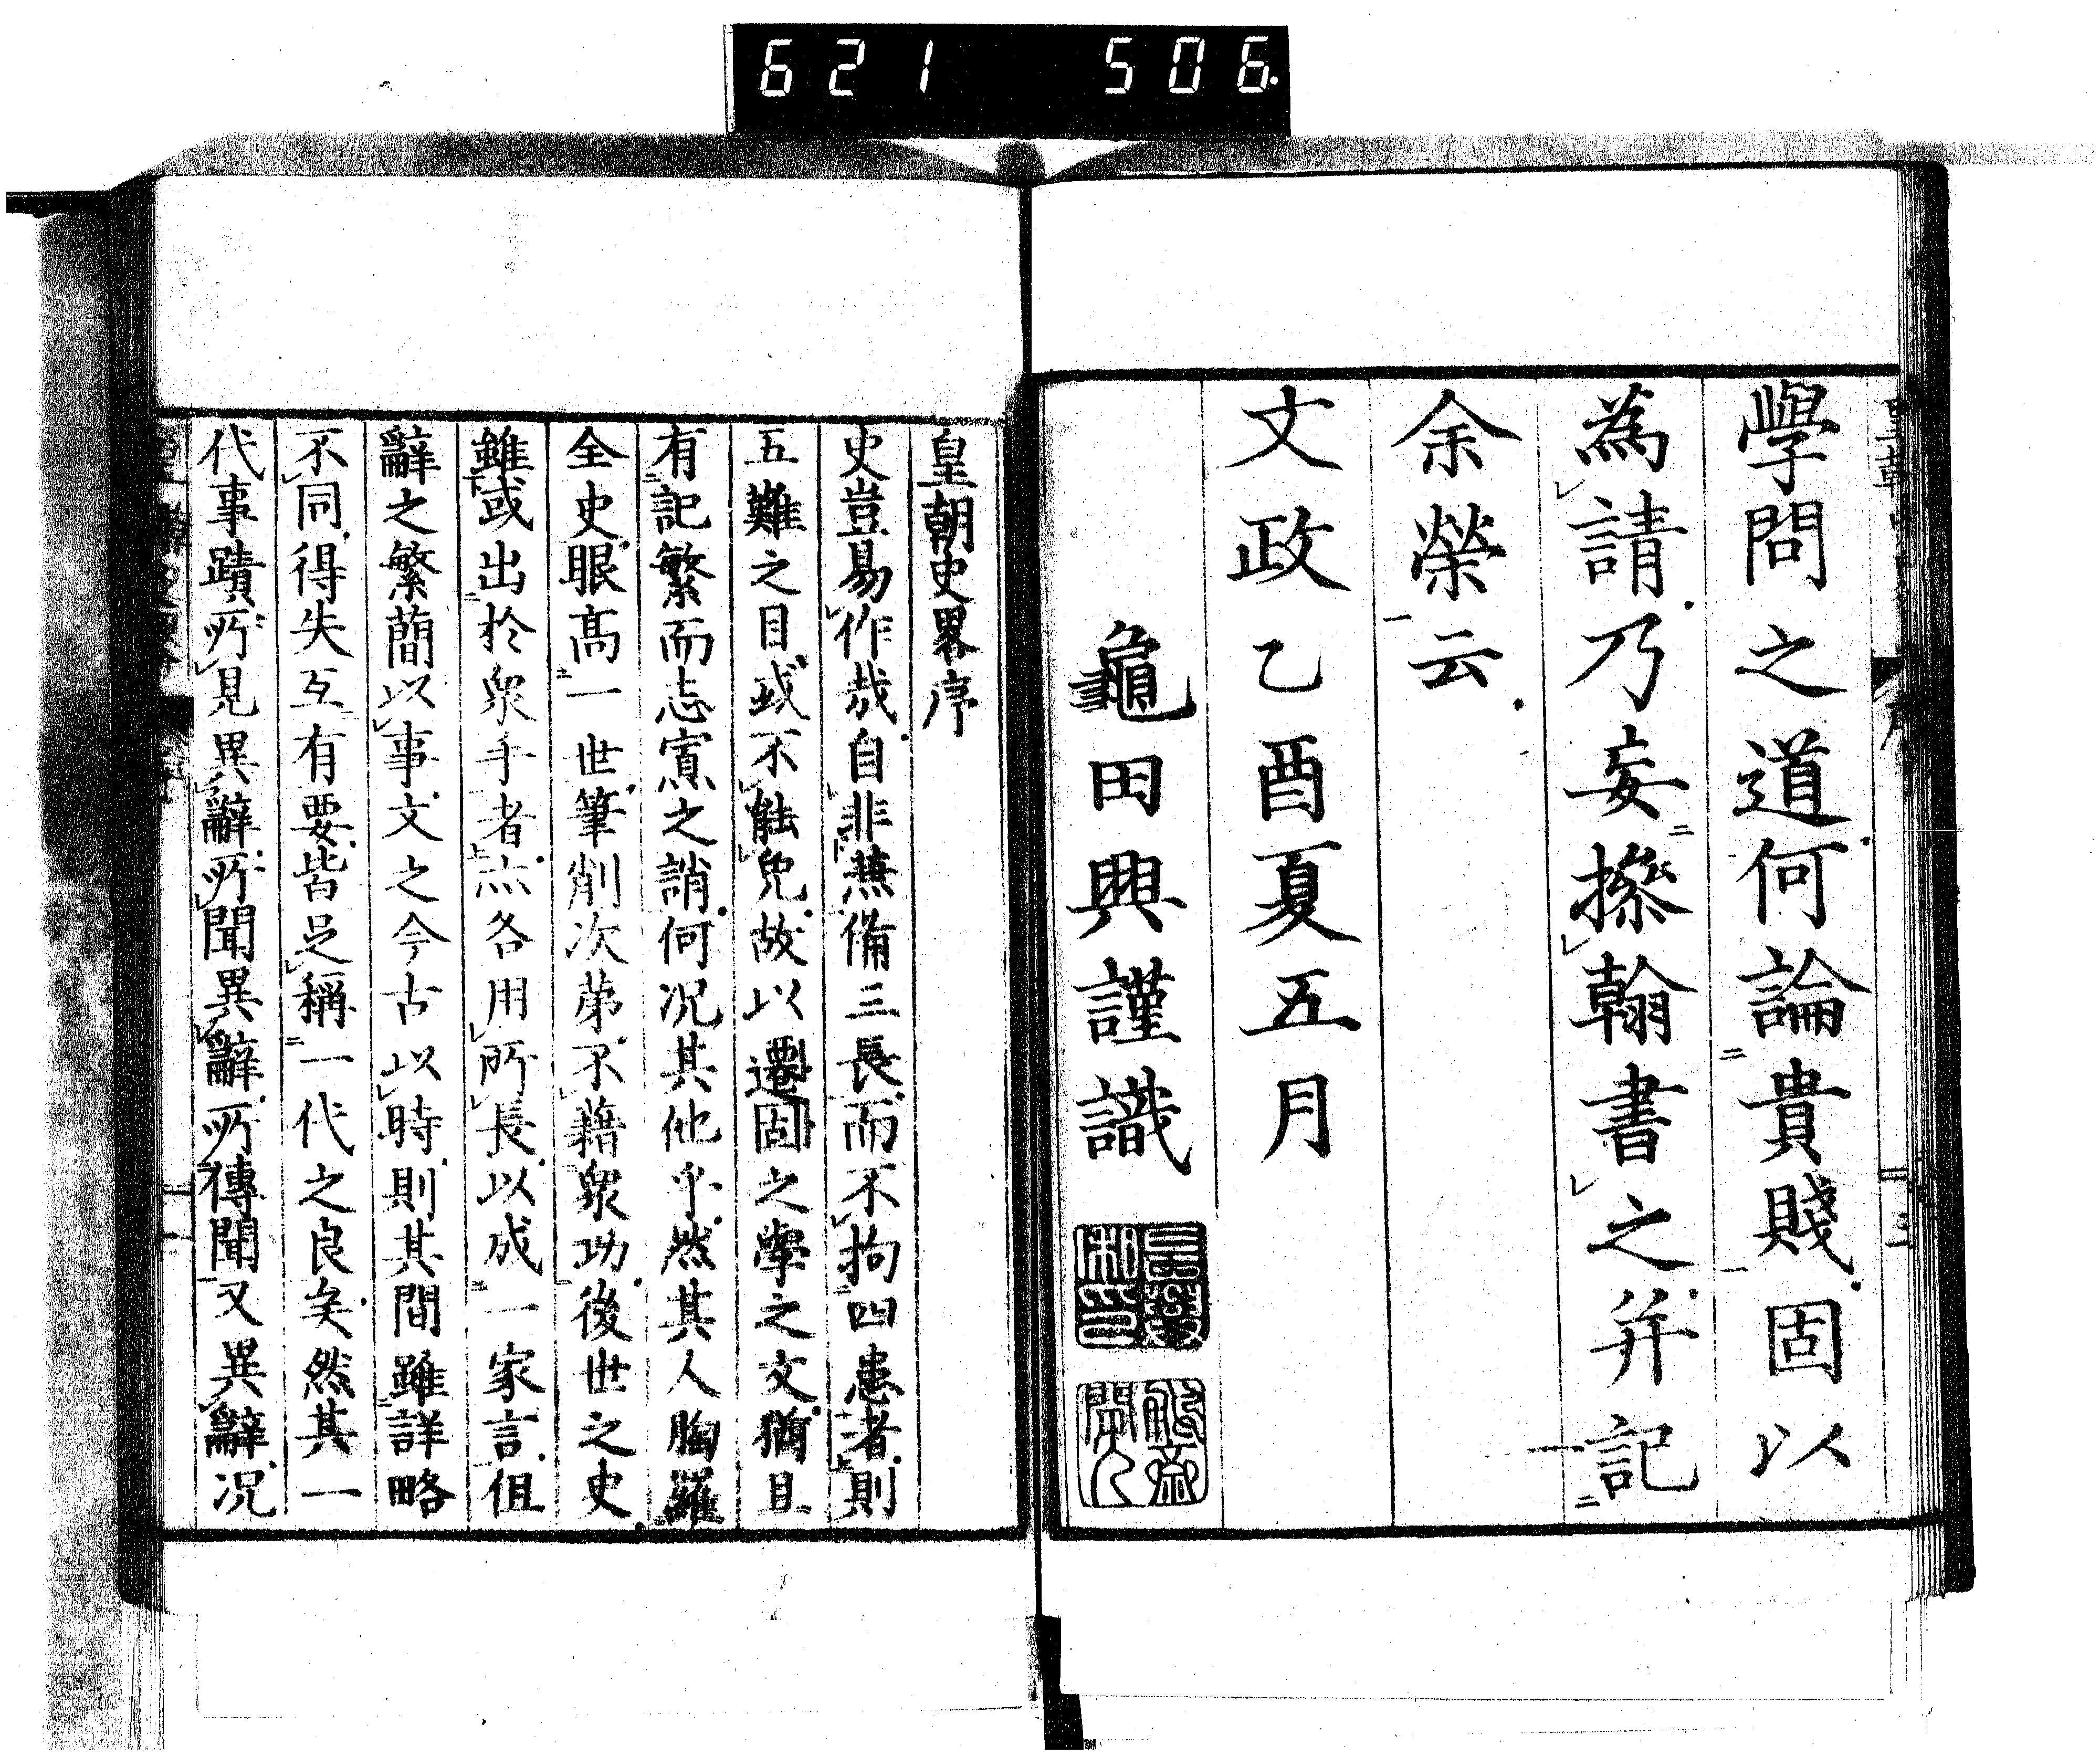 621 506
學問之道何論貴賤固以
為請乃妄操翰書之并記
余榮云
文政乙酉夏五月
龜田興謹識
皇朝史畧序
史豈易作哉自非兼備三長而不拘四患者則
五難之目或不能免故以遷固之學之文猶且
有記繁而志寡之誚何况其他乎然其人胸羅
全史眼高一世筆削次第不藉衆功後世之史
雖或出於衆手者亦各用所長以成一家言但
辭之繁蕳以事文之今古以時則其間雖詳略
不同得失互有要皆足稱一代之良矣然其一
代事蹟所見異辭所聞異辭所傳聞又異辭况